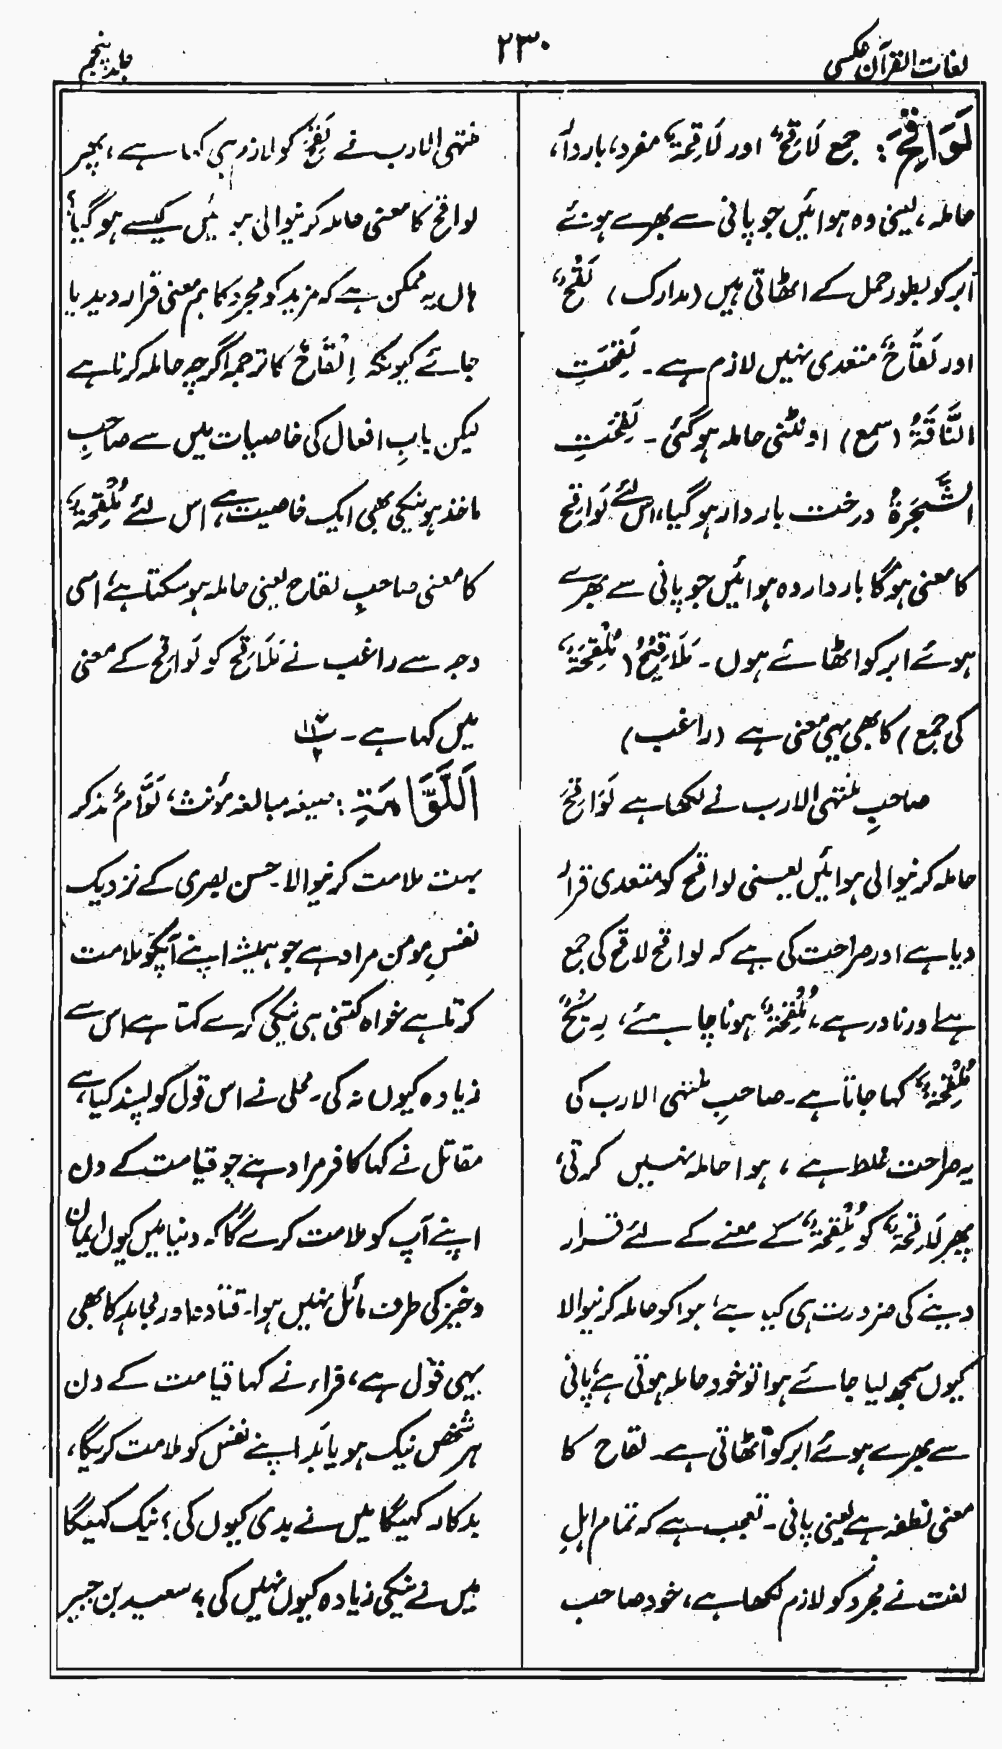 لغات القرآن عکسی
۲۳۰
جلد پنجم
لَوَاقِحَ: جمع لَاقِحٌ اور لَاقِحَۃٌ مفرد، باردار،
حاملہ، یعنی وہ ہوائیں جو پانی سے بھرے ہوئے
ابر کو بطور حمل کے اٹھاتی ہیں (مدارک) لَقْحٌ
اور لَقَاحٌ متعدی نہیں لازم ہے۔ لَقِحَتِ
النَّاقَۃُ (سمع) اونٹنی حاملہ ہوگئی۔ لَقِحَتِ
الشَّجَرَۃُ درخت باردار ہوگیا، اس لئے لَوَاقِح
کا معنی ہوگا باردار وہ ہوائیں جو پانی سے بھرے
ہوئے ابر کو اٹھائے ہوں۔ مَلَاقِیْحُ (مُلْقِحَۃٌ
کی جمع) کا بھی یہی معنی ہے (راغب)
صاحبِ منتہی الارب نے لکھا ہے لَوَاقِحَ
حاملہ کرنیوالی ہوائیں یعنی لواقح کو متعدی قرار
دیا ہے اور صراحت کی ہے کہ لواقح لاقح کی جمع
ہے اور نادر ہے، مُلْقِحَۃٌ ہونا چاہئے، رِیْحٌ
مُلْقِحَۃٌ کہا جاتا ہے۔ صاحبِ منتہی الارب کی
یہ صراحت غلط ہے، ہوا حاملہ نہیں کرتی،
پھر لَاقِحَۃٌ کو مُلْقِحَۃٌ کے معنے کے لئے قرار
دینے کی ضرورت ہی کیا ہے، ہوا کو حاملہ کرنیوالا
کیوں سمجھ لیا جائے ہوا تو خود حاملہ ہوتی ہے، پانی
سے بھرے ہوئے ابر کو اٹھاتی ہے۔ لقاح کا
معنی نطفہ ہے یعنی پانی۔ تعجب ہے کہ تمام اہلِ
لغت نے مجرد کو لازم لکھا ہے، خود صاحب
منتہی الارب نے لَقِحَ کو لازم ہی کہا ہے، پھر
لواقح کا معنی حاملہ کرنیوالی ہوائیں کیسے ہوگیا؟
ہاں یہ ممکن ہے کہ مزید کو مجرد کا ہم معنی قرار دیدیا
جائے کیونکہ اِلْقَاحٌ کا ترجمہ اگرچہ حاملہ کرنا ہے
لیکن بابِ افعال کی خاصیات میں سے صاحبِ
ماخذ ہونیکی بھی ایک خاصیت ہے، اس لئے مُلْقِحَۃٌ
کا معنی صاحبِ لقاح یعنی حاملہ ہوسکتا ہے، اسی
وجہ سے راغب نے مَلَاقِح کو لَوَاقِح کے معنی
میں کہا ہے۔
اَللَّوَّامَۃِ: صیغہ مبالغہ مؤنث، لَوَّامٌ مذکر
بہت ملامت کرنیوالا۔ حسن بصری کے نزدیک
نفسِ مومن مراد ہے جو ہمیشہ اپنے آپکو ملامت
کرتا ہے خواہ کتنی ہی نیکی کرے کہتا ہے اس سے
زیادہ کیوں نہ کی۔ محلی نے اس قول کو پسند کیا ہے،
مقاتل نے کہا کافر مراد ہے جو قیامت کے دن
اپنے آپ کو ملامت کرے گا کہ دنیا میں کیوں ایمان
و خیر کی طرف مائل نہیں ہوا۔ قتادہ اور مجاہد کا بھی
یہی قول ہے، فراء نے کہا قیامت کے دن
ہر شخص نیک ہو یا بد اپنے نفس کو ملامت کریگا،
بدکار کہیگا میں نے بدی کیوں کی؟ نیک کہیگا
میں نے نیکی زیادہ کیوں نہیں کی؟ سعید بن جبیر